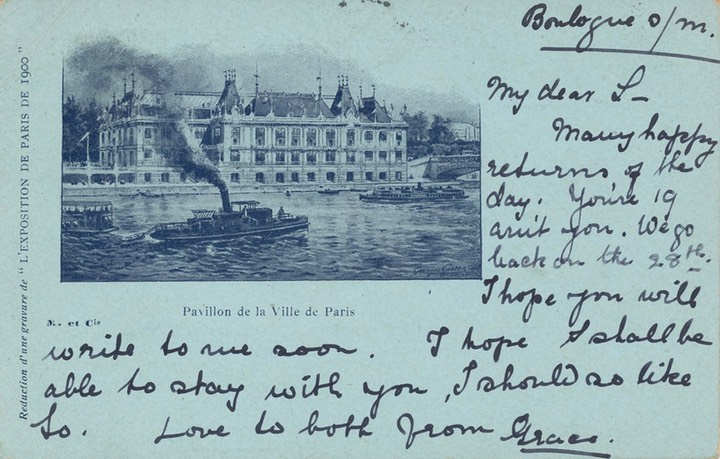 Boulogne s/m.
My dear L—
Many happy
returns of the
day. You're 19
arn't you. We go
back on the 28th.
I hope you will
write to me soon. I hope I shall be
able to stay with you, I should so like
to. Love to both from Grace.
Pavillon de la Ville de Paris
M. et Cie
Reduction d'une gravure de "L'EXPOSITION DE PARIS DE 1900"